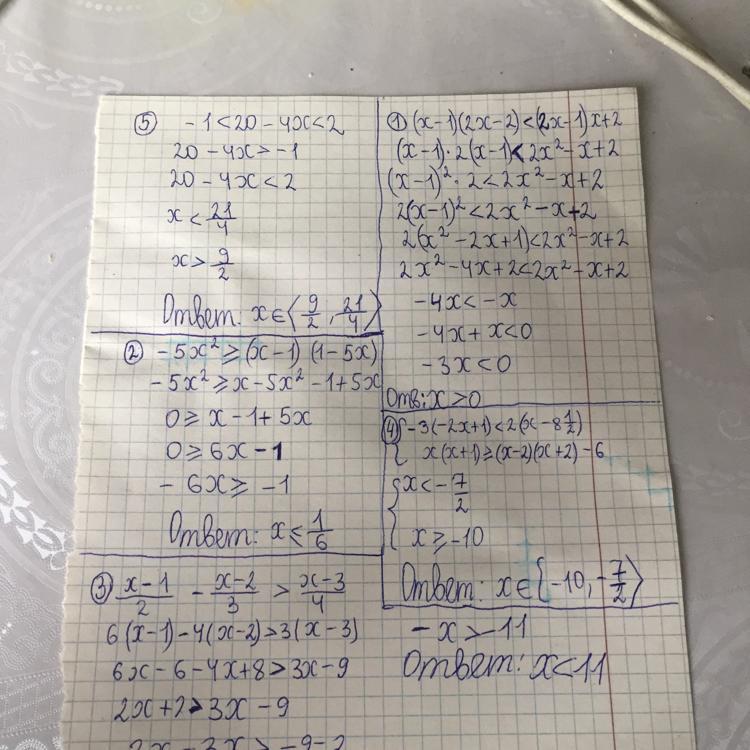 ⑤ -1<20-4x<2
20-4x>-1
20-4x<2
x<21/4
x>9/2
Ответ: x∈⟨9/2, 21/4⟩
② -5x²≥(x-1)(1-5x)
-5x²≥x-5x²-1+5x
0≥x-1+5x
0≥6x-1
-6x≥-1
Ответ: x≤1/6
③ (x-1)/2 - (x-2)/3 > (x-3)/4
6(x-1)-4(x-2)>3(x-3)
6x-6-4x+8>3x-9
2x+2>3x-9
2x-3x>-9-2
① (x-1)(2x-2)<(2x-1)x+2
(x-1)·2(x-1)<2x²-x+2
(x-1)²·2<2x²-x+2
2(x-1)²<2x²-x+2
2(x²-2x+1)<2x²-x+2
2x²-4x+2<2x²-x+2
-4x<-x
-4x+x<0
-3x<0
Отв: x>0
④ { -3(-2x+1)<2(x-8 1/2)
x(x+1)≥(x-2)(x+2)-6
{ x<-7/2
x≥-10
Ответ: x∈{-10, -7/2⟩
-x>-11
Ответ: x<11